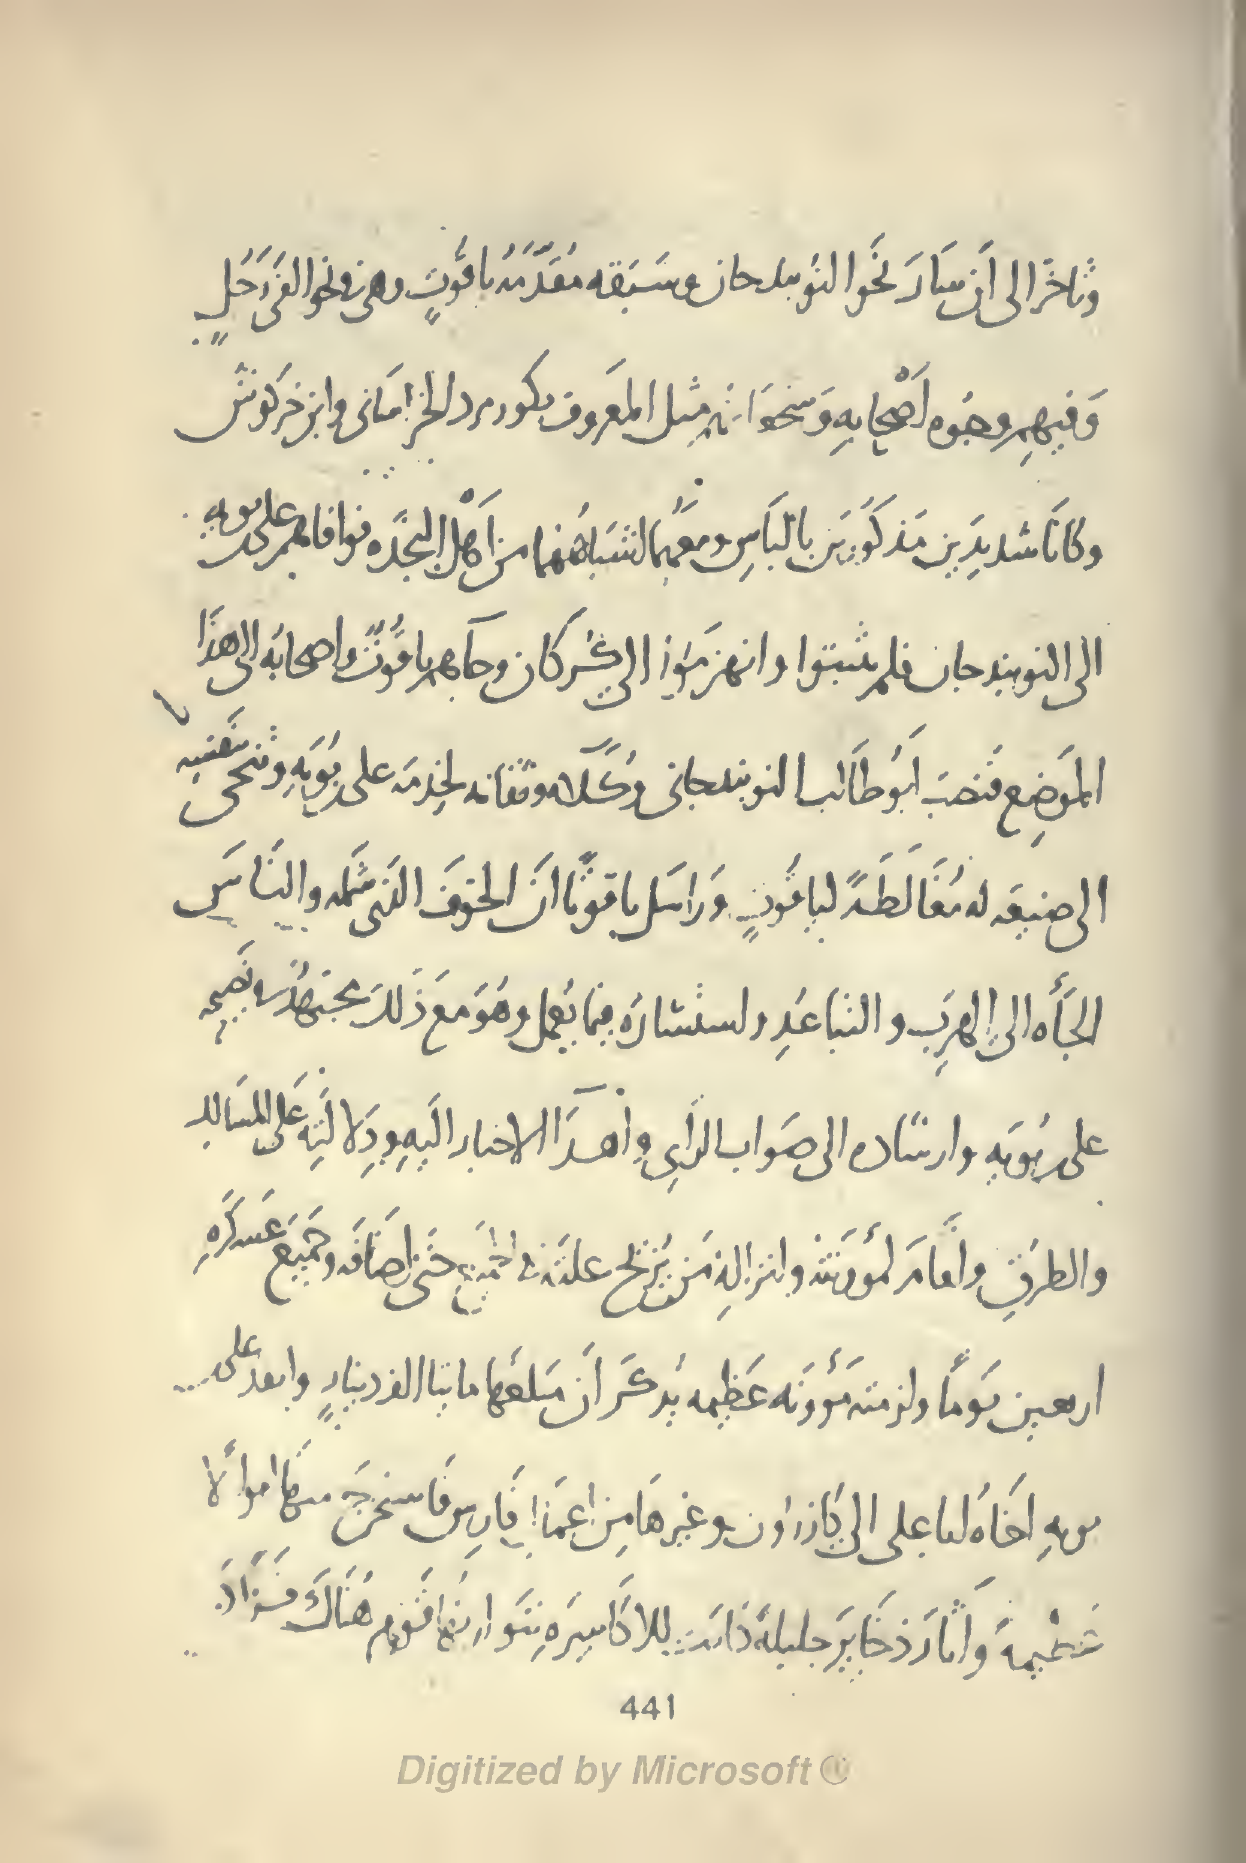 وتاخّر الى أن سَارَ نَحَو النوبندجان وسَبَقه مُقَدّمَةُ ياقُوتٍ وهى فى نحو الفَى رَجُلٍ
وَفيهِم وجُوه أصْحابِه وَ مثل المعَروف بكورمرد الخراسَانى وابن خركوش
وكانَا شديدَين مَذكوَرين بالبَاسِ ومعَهُما اشبَاهُهُما من اهْل النجدَه فوافاهم على بويه
الى النوبندجان فلم يثبتوا وانهزمَوا الى كركان وجآهم ياقُوتٌ واصحابه الى هذَا
الموَضِع فنَصَبَ ابوُ طَالب النوبندجانى وُكَلآه وثقاته لخِدمَه على بوُيَهِ وتنحى بنَفسِه
الى ضيعَه له مُغَالَطَةً لياقُوتٍ وَراسَل ياقوتًا انَّ الخوَفَ الذَى شَمله والنّاسَ
الجأَه الى الهرَبِ والتباعُدِ واستشارَه فيما يَعمل وهُوَ مَع ذَلكَ مجتهدٌ فى نصيحه
على بوُيَه وارشاده الى صَواب الرأىِ واهدآ الاخبار اليَهِ ودِلالَتِه عَلى المسَالك
والطرقِ واقامَ لمؤونَتَهْ وانزالِهِ مَن يُزيح علتَه فى حَتى اضَافَه وجَميَع عَسكرَهِ
اربعين يَومًا ولزمته مَؤُونَه عَظيِمه يُذكَر أن مَبلغَها مايتا الف دينارٍ وابعدَ على
بويهِ اخَاهُ ابا على الى كَازرُون وغيرهَا مِن اعمَال فَارِس فَاستخرجَ منهَا اموالًا
عَظيمةً وآثارَ ذخَايَر جليلةً كانت للاكَاسِرَهِ يتَوارثها قَوم هُنَاكَ فَزَادَ
441
Digitized by Microsoft ®